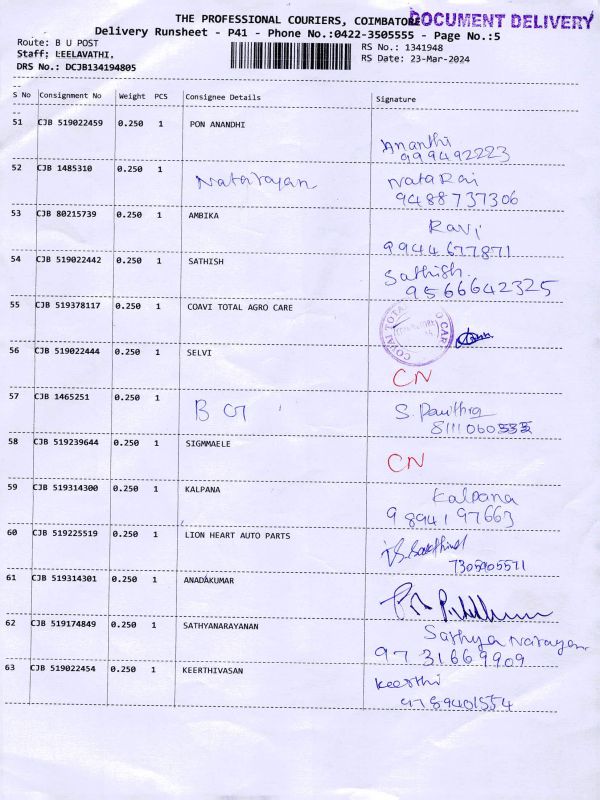 THE PROFESSIONAL COURIERS, COIMBATORE
DOCUMENT DELIVERY
Delivery Runsheet - P41 - Phone No.:0422-3505555 - Page No.:5
Route: B U POST
Staff; LEELAVATHI,
DRS No.: DCJB134194805
RS No.: 1341948
RS Date: 23-Mar-2024
S No Consignment No Weight PCS Consignee Details Signature
51 CJB 519022459 0.250 1 PON ANANDHI
Ananthi
999492223
52 CJB 1485310 0.250 1 Natarayan Nata Rai
9488737306
53 CJB 80215739 0.250 1 AMBIKA Ravi
9944677871
54 CJB 519022442 0.250 1 SATHISH Sathish.
9566642325
55 CJB 519378117 0.250 1 COAVI TOTAL AGRO CARE
56 CJB 519022444 0.250 1 SELVI
CN
57 CJB 1465251 0.250 1 B G S. Pavithra
8111060
58 CJB 519239644 0.250 1 SIGMMAELE
CN
59 CJB 519314300 0.250 1 KALPANA Kalpana
9894197663
60 CJB 519225519 0.250 1 LION HEART AUTO PARTS
7305905571
61 CJB 519314301 0.250 1 ANADAKUMAR
62 CJB 519174849 0.250 1 SATHYANARAYANAN Sathya Narayan
9731669909
63 CJB 519022454 0.250 1 KEERTHIVASAN Keerthi
9789401554